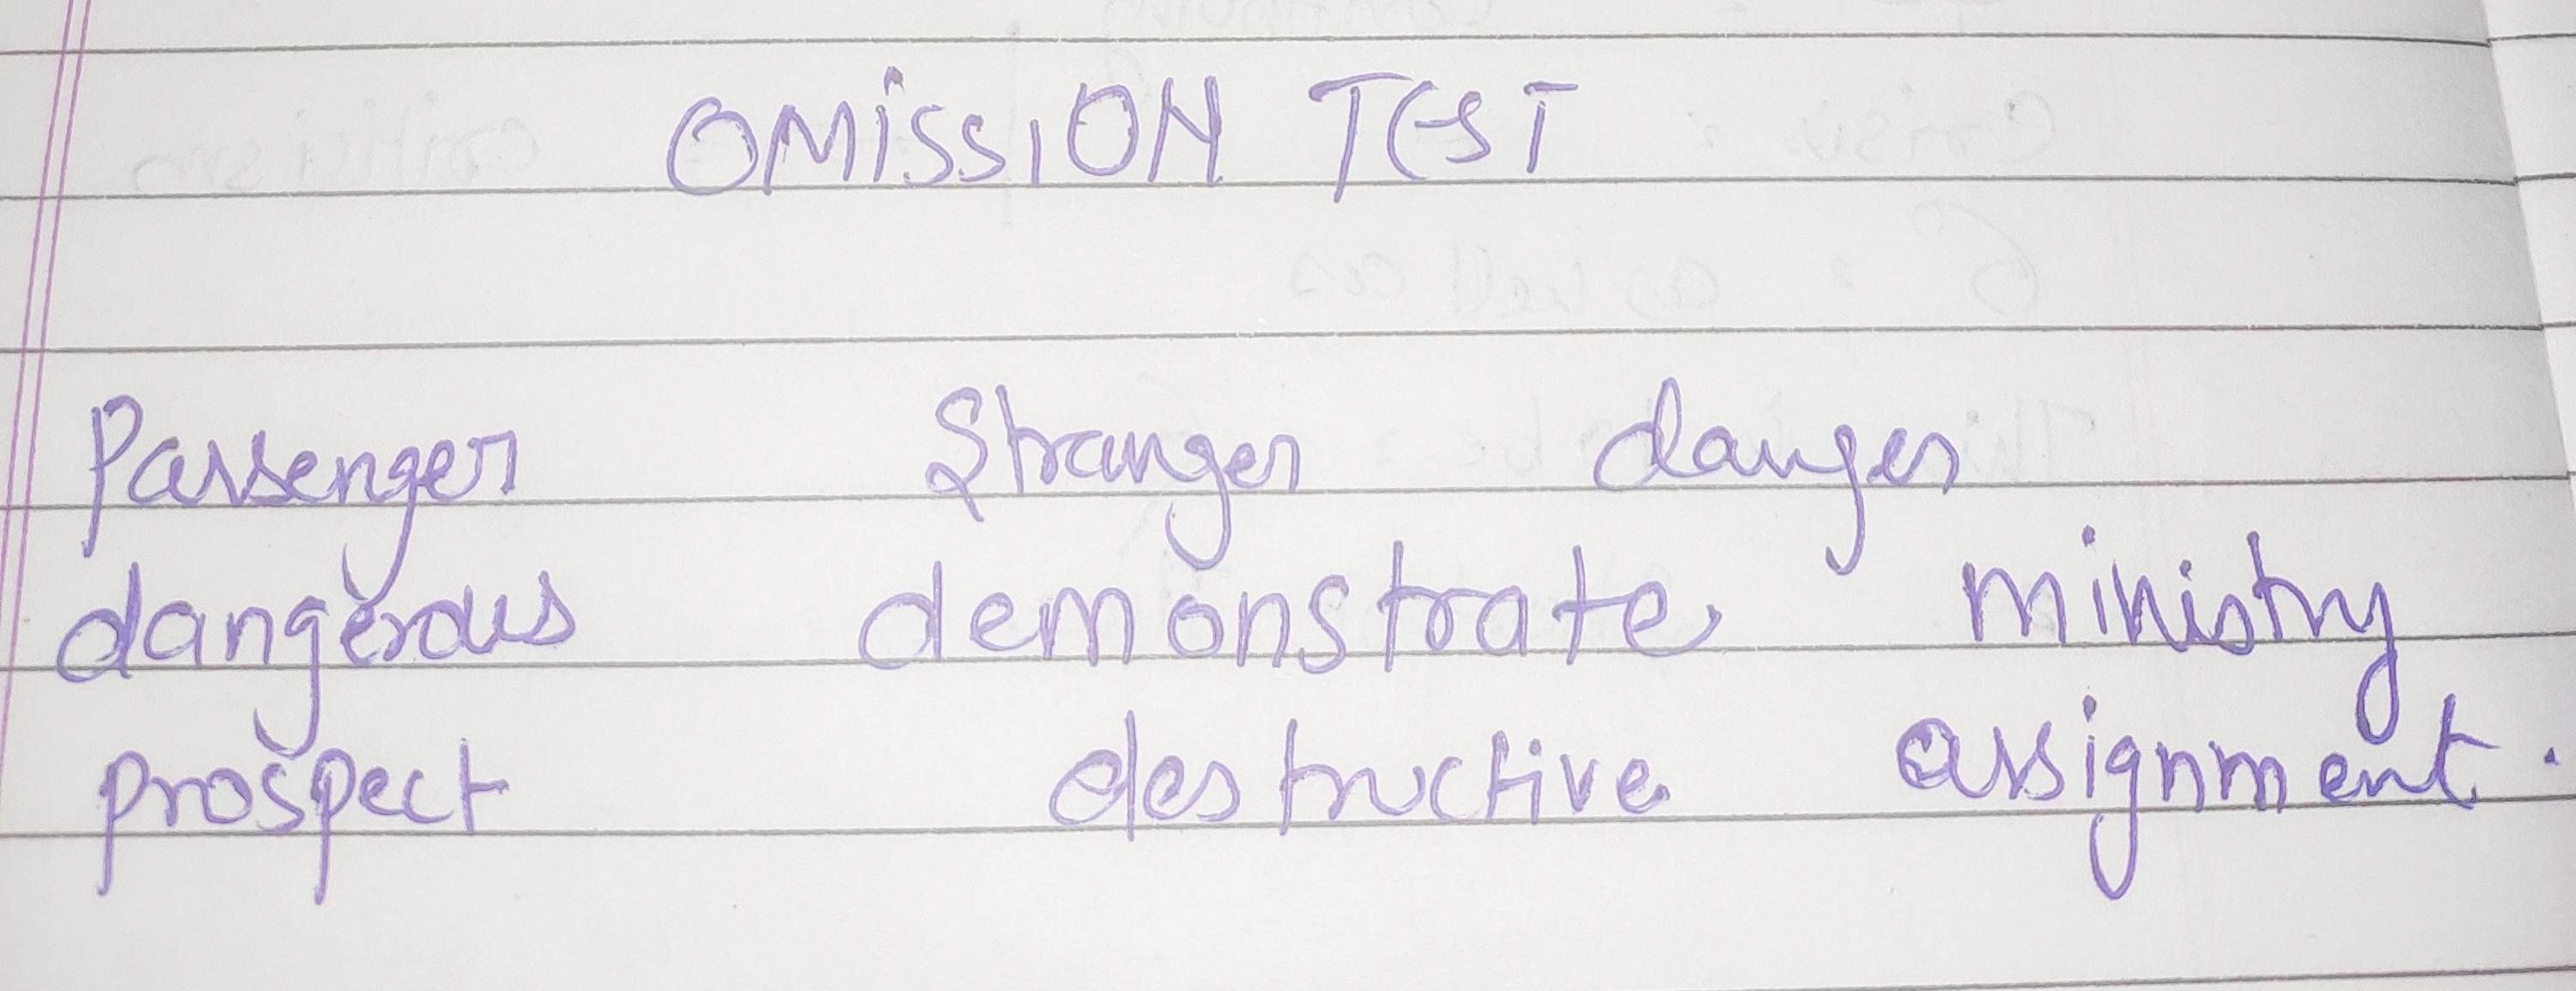 OMISSION TEST
Passenger Stranger danger
dangerous demonstrate ministry
prospect destructive assignment.